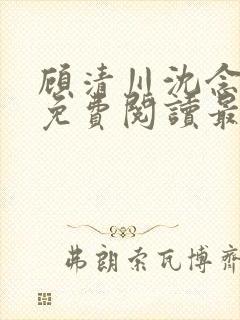 顾清川沈念
免費閱讀最
弗朗索瓦博齊